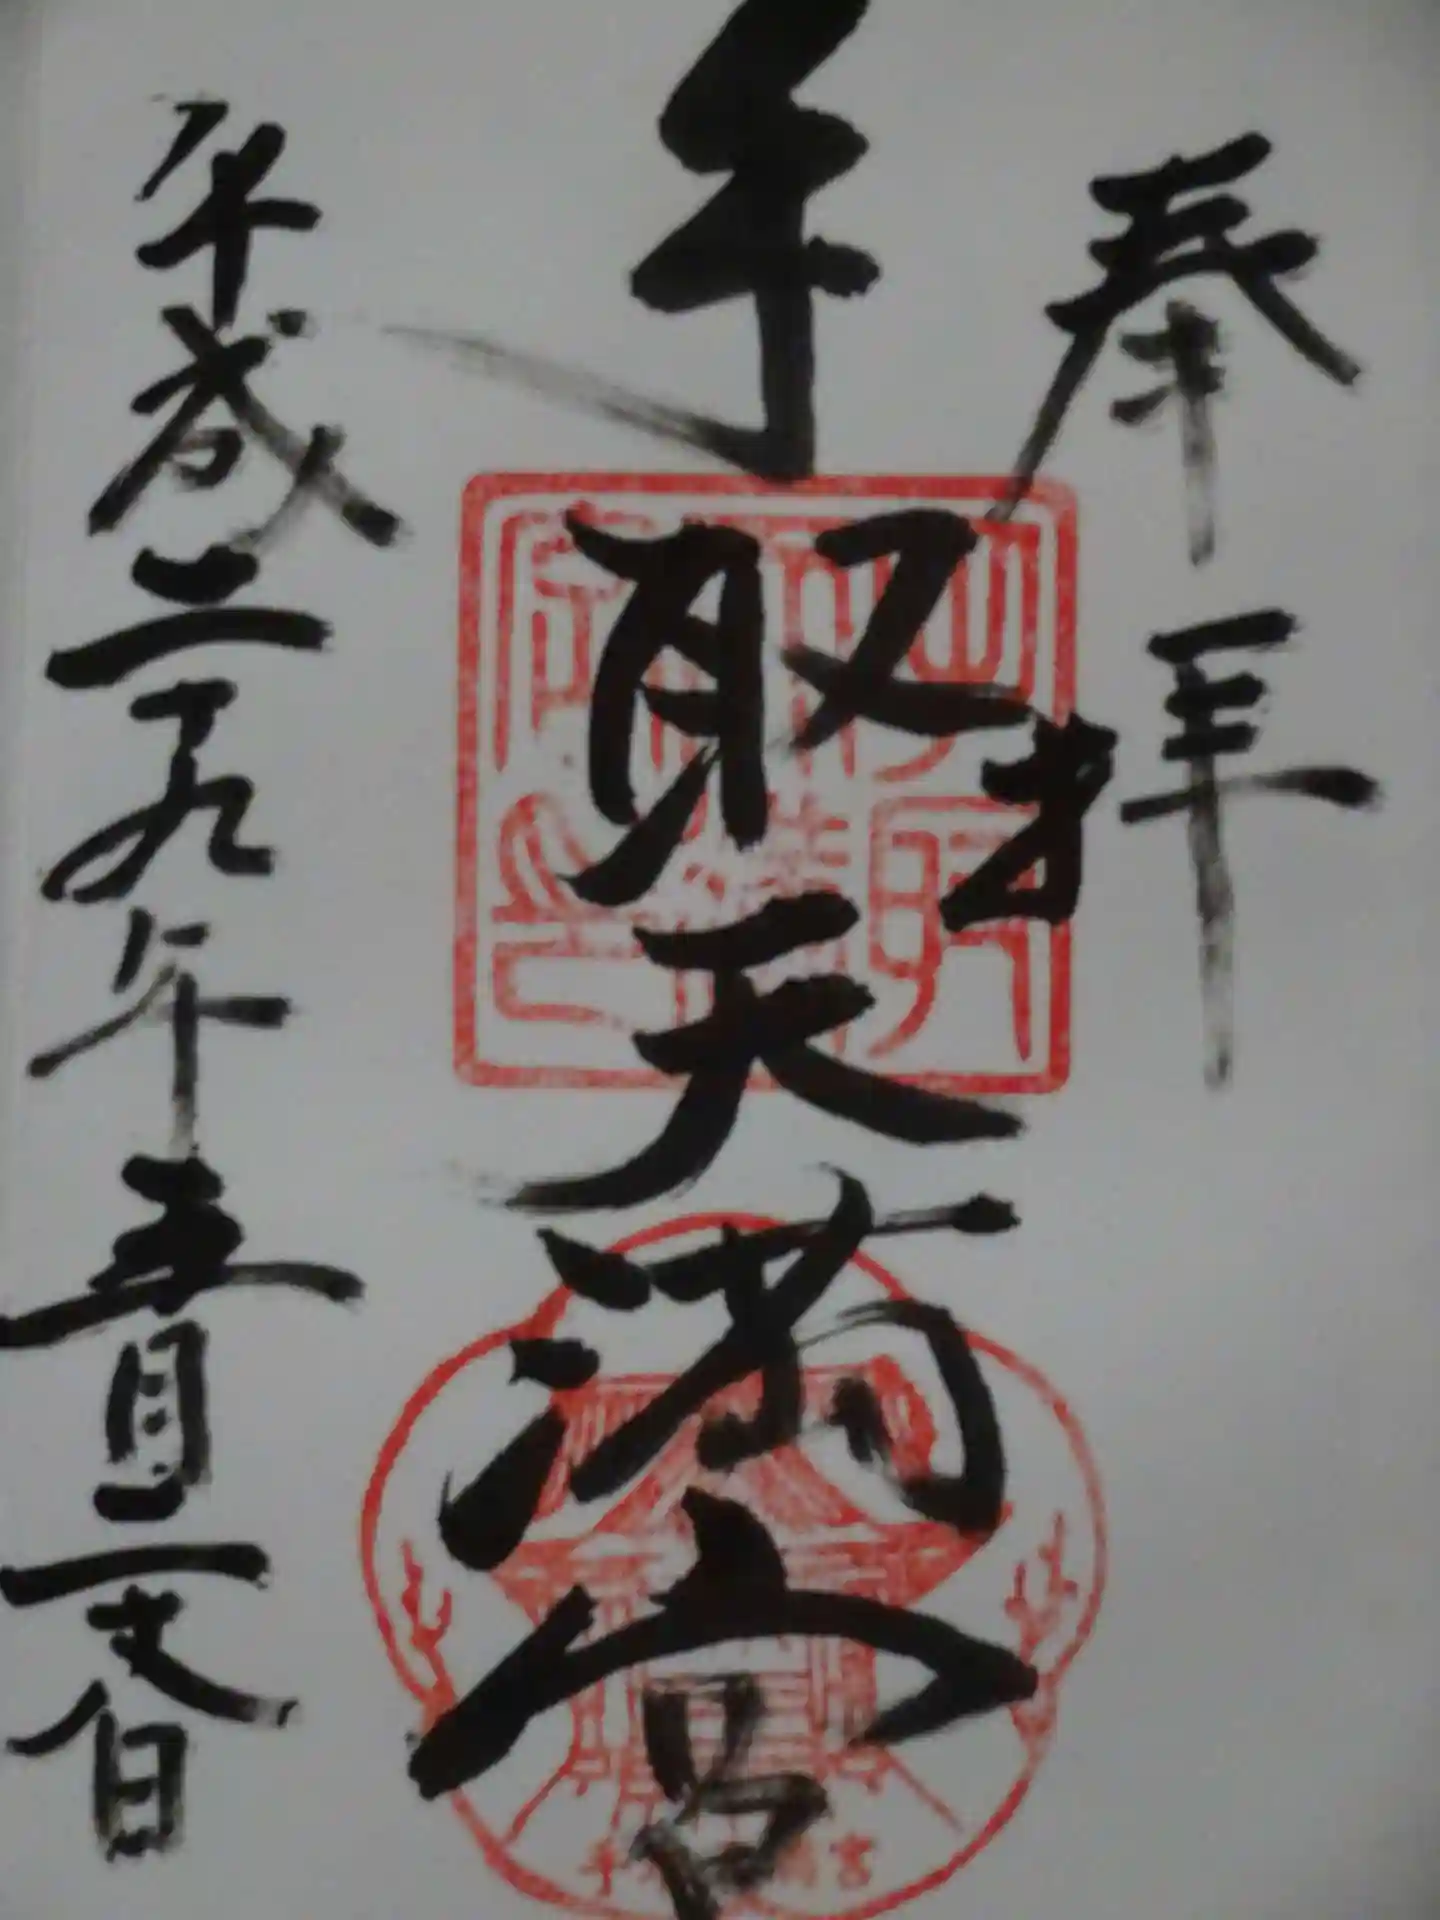 奉拝
手取天満宮
平成二十九年五月二十八日